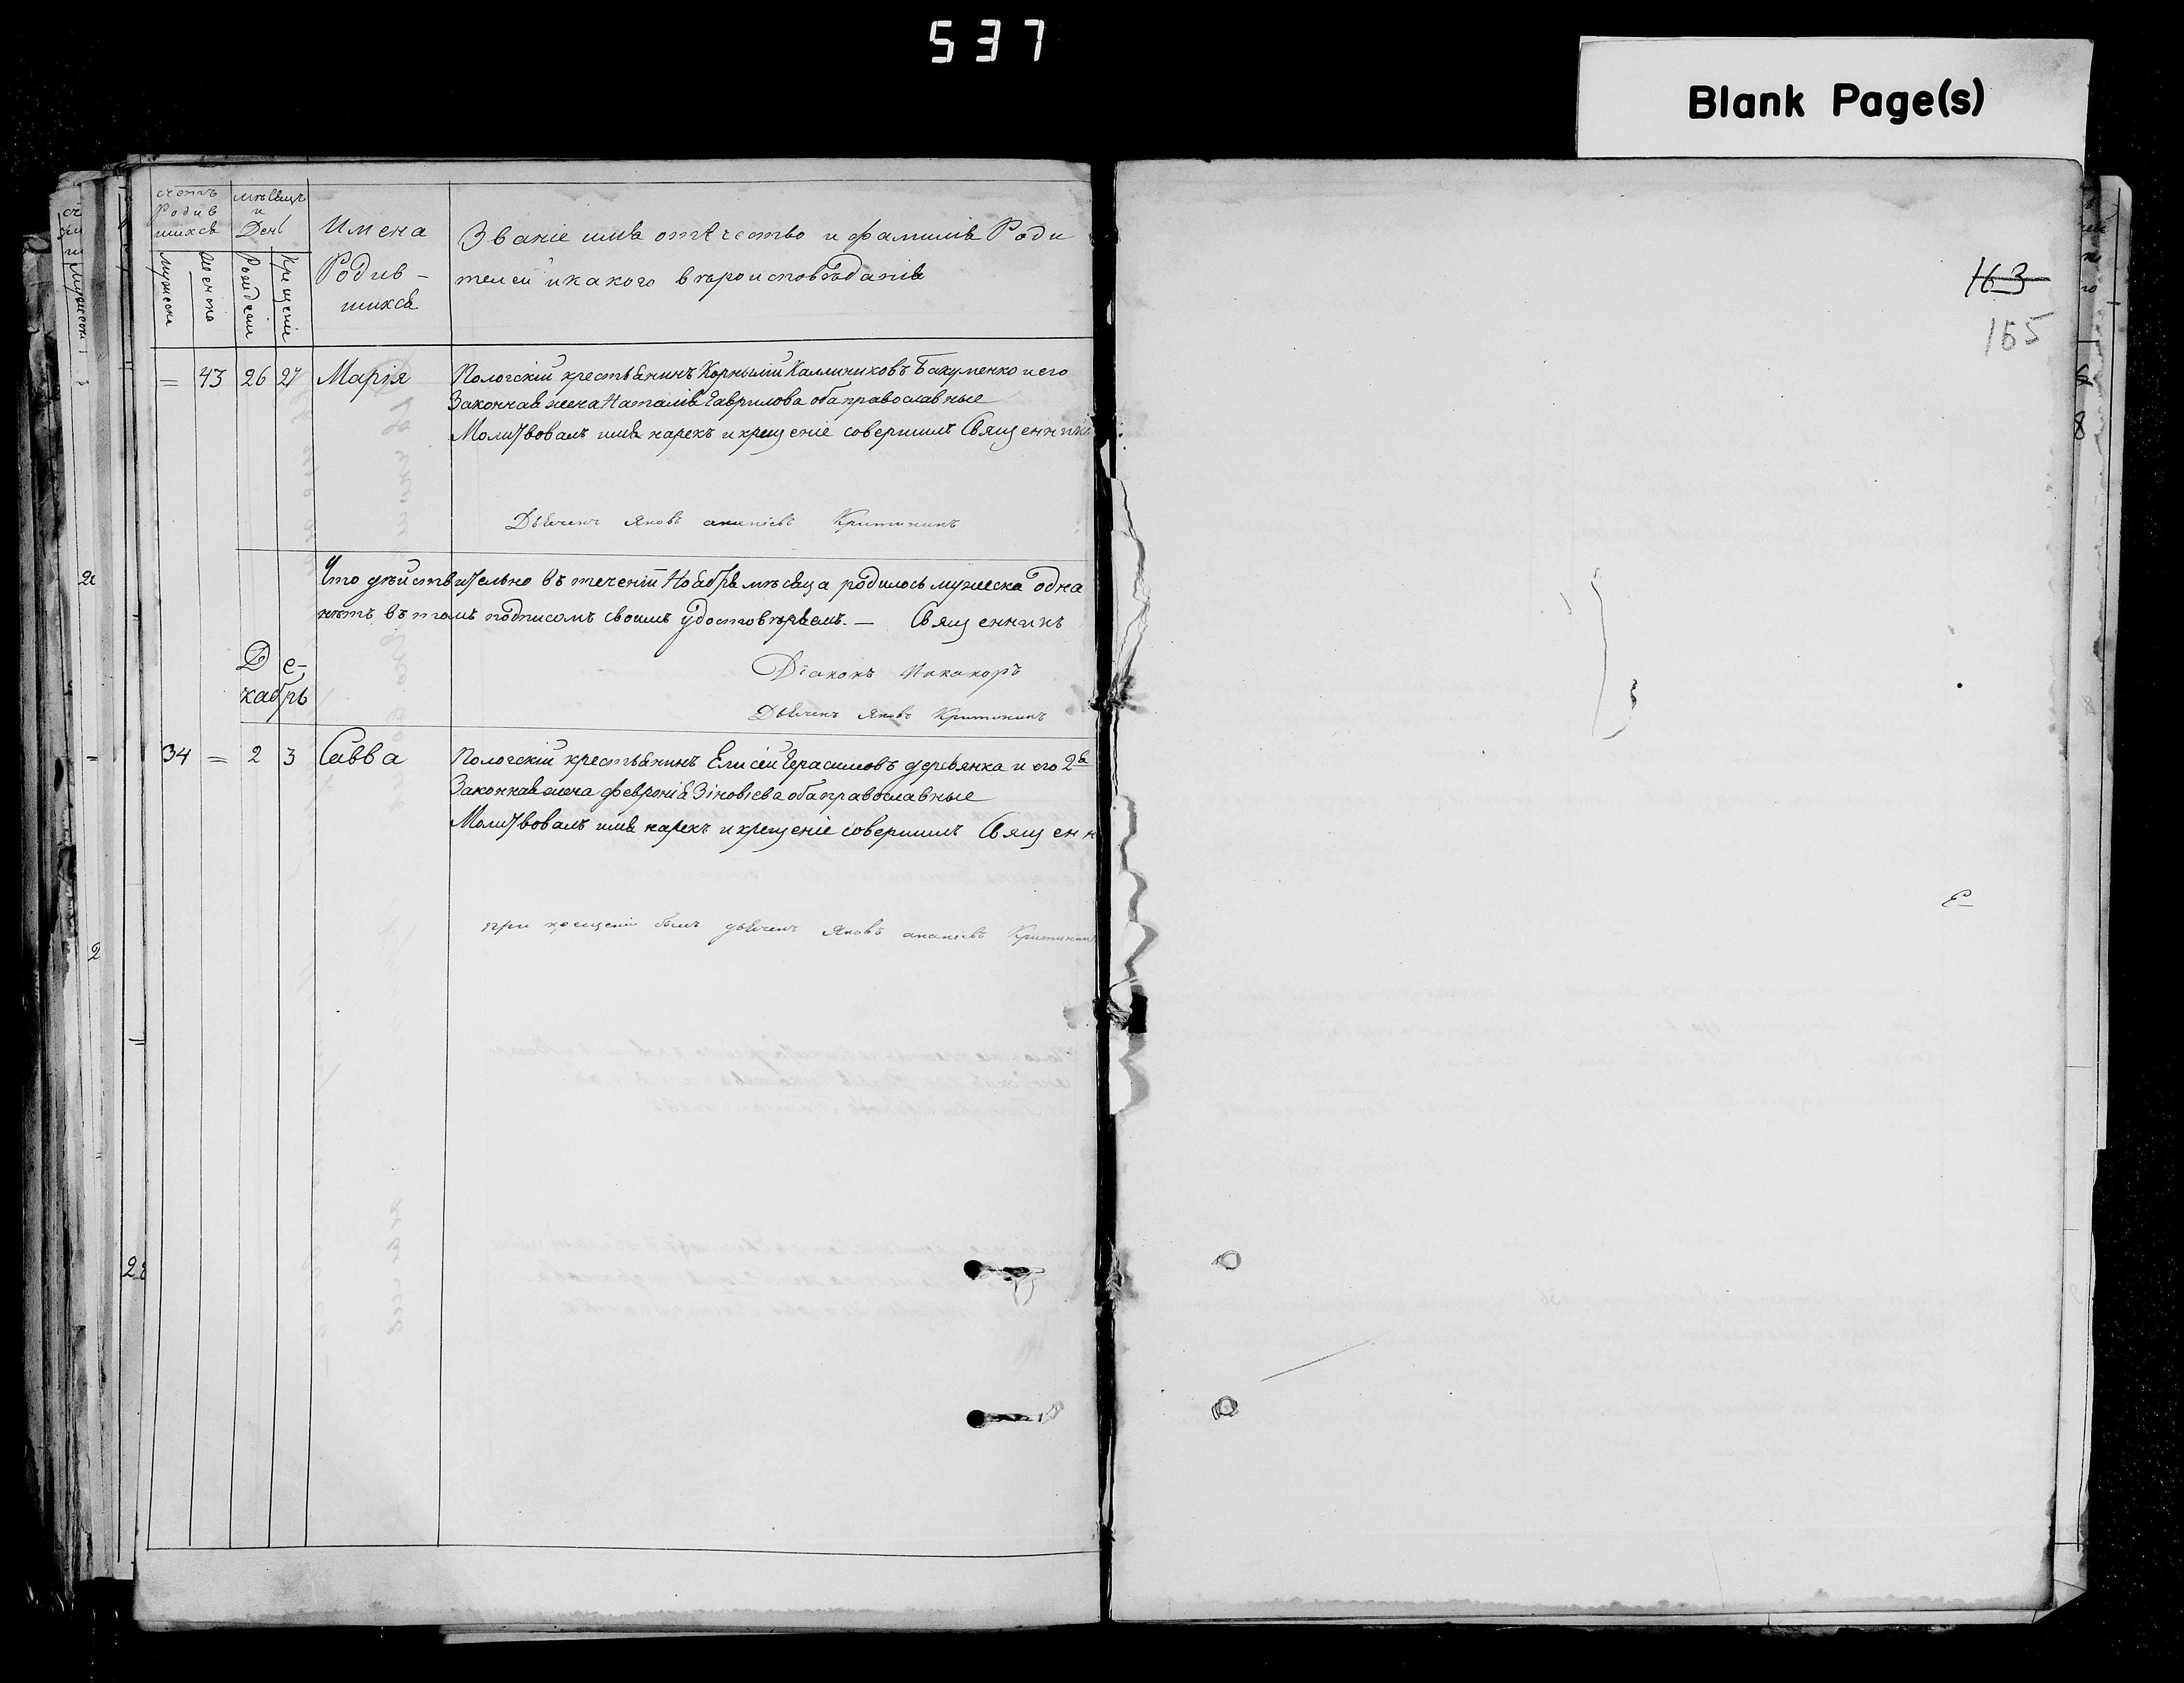 537
Blank Page(s)
счетъ Родив шихся
мѣсяцъ и День
Имена Родив-шихся
Званіе имя отчество и фамилія Роди
телей и какого вѣроисповѣданія
мужеска
женска
Рожденія
Крещеніе
163
165
= 43 26 27 Марія Пологскій крестьянинъ Корнилій Каллиниковъ Бакуменко и его
Законная жена Наталія Гаврилова оба православные
Молитвовалъ имя нарекъ и крещеніе совершилъ Священникъ
Дьячекъ Яковъ ананіевъ
Что дѣйствительно въ теченіи Ноября мѣсяца родилось мужеска одна
нѣтъ въ томъ подписомъ своимъ удостовѣряемъ. — Священникъ
Діаконъ
Дьячекъ Яковъ
Де-
кабрь
34 = 2 3 Савва Пологскій крестьянинъ Елисей Герасимовъ деревянка и его 2я
Законная жена Февронія Зіновіева оба православные
Молитвовалъ имя нарекъ и крещеніе совершилъ Священн
при крещеніи былъ дьячекъ Яковъ ананіевъ